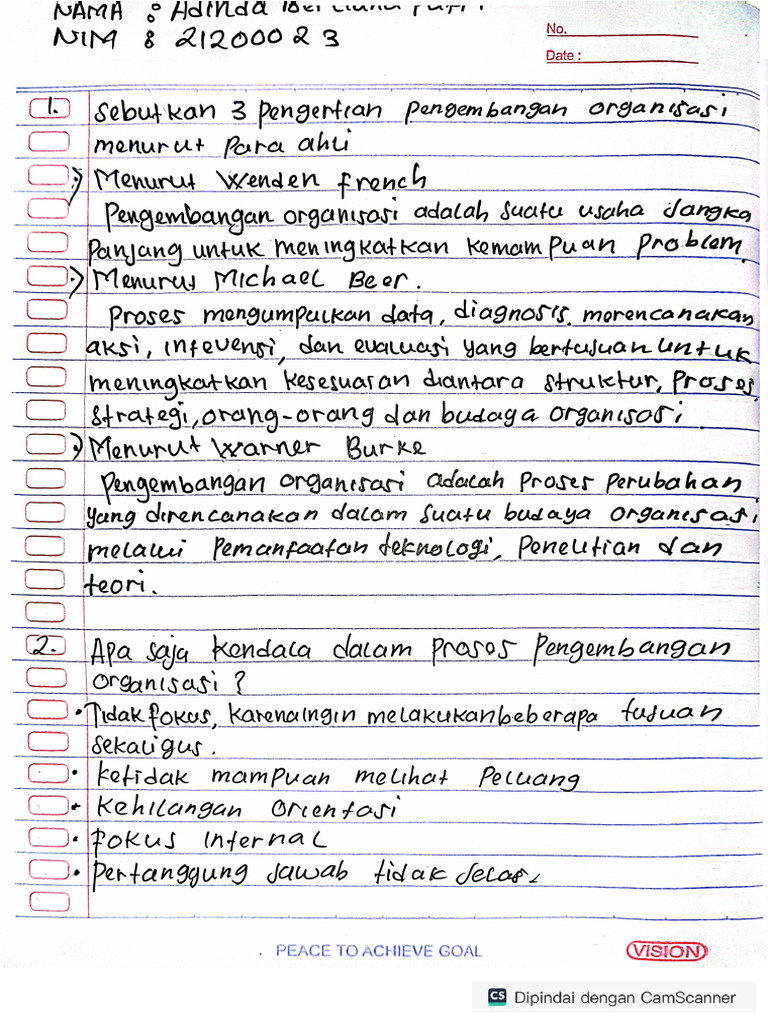 NAMA : Adinda
NIM : 21200023
No.
Date :
1. Sebutkan 3 pengertian pengembangan organisasi
menurut para ahli
Menurut Wenden french
Pengembangan organisasi adalah suatu usaha jangka
panjang untuk meningkatkan kemampuan problem.
Menurut Michael Beer.
Proses mengumpulkan data, diagnosis, merencanakan
aksi, intevensi, dan evaluasi yang bertujuan untuk
meningkatkan kesesuaian diantara struktur, proses,
strategi, orang-orang dan budaya organisasi.
Menurut Warner Burke
Pengembangan organisasi adalah proses perubahan
yang direncanakan dalam suatu budaya organisasi
melalui pemanfaatan teknologi, penelitian dan
teori.
2. Apa saja kendala dalam proses pengembangan
organisasi ?
• Tidak fokus, karena ingin melakukan beberapa tujuan
sekaligus.
• ketidak mampuan melihat peluang
• Kehilangan Orientasi
• fokus internal
• pertanggung jawab tidak jelas.
PEACE TO ACHIEVE GOAL
VISION
CS Dipindai dengan CamScanner